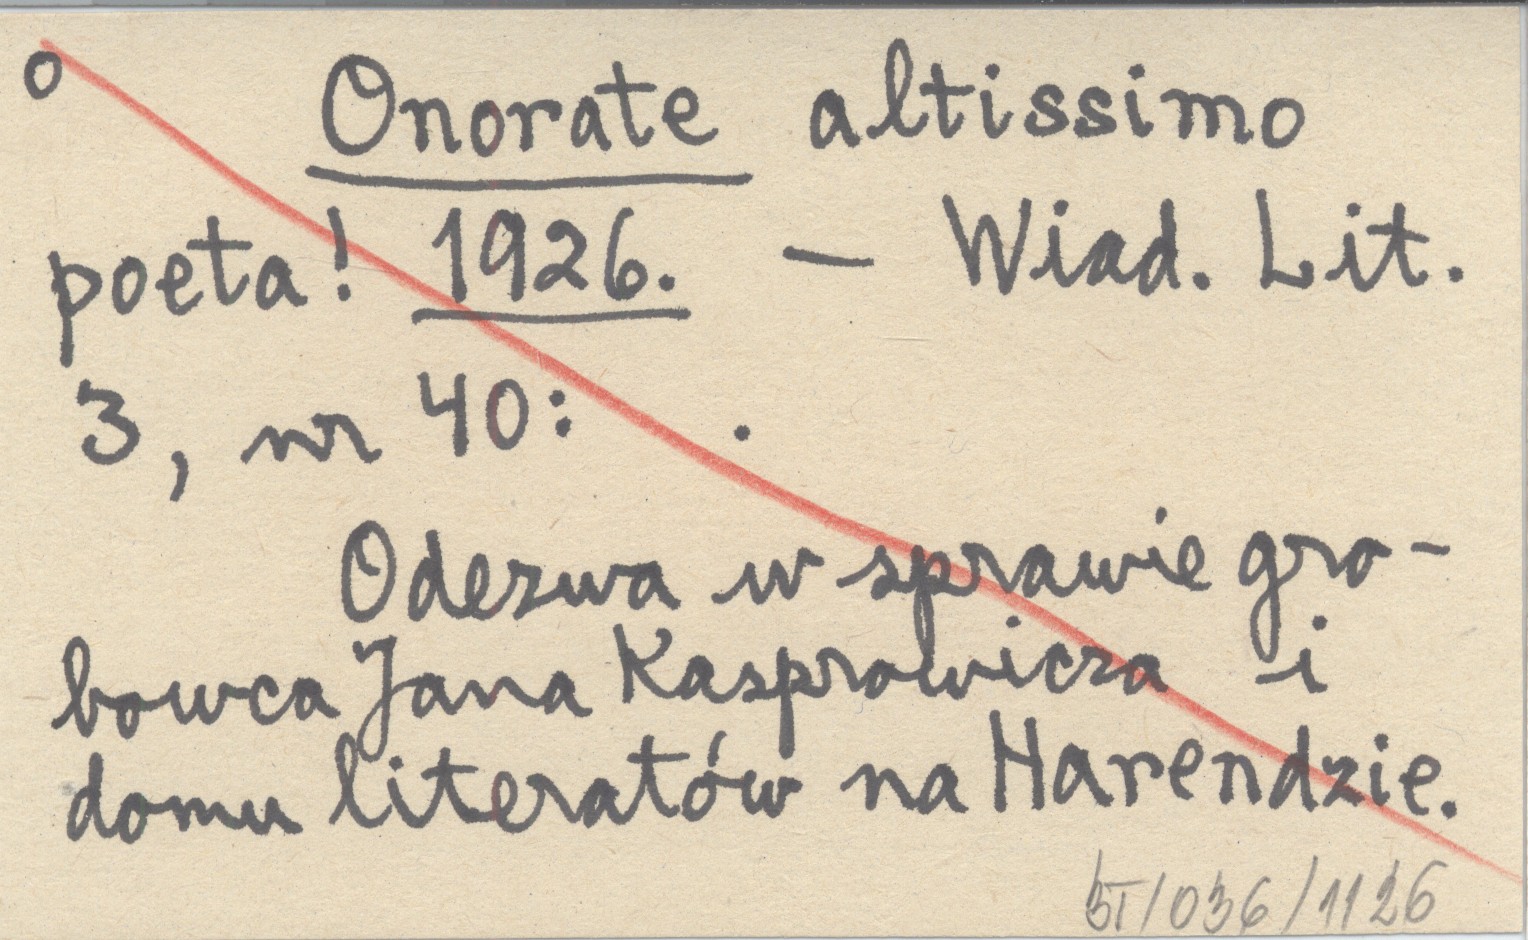 o Onorate altissimo
poeta! 1926. – Wiad. Lit.
3, nr 40: .
Odezwa w sprawie gro-
bowca Jana Kasprowicza i
domu literatów na Harendzie.
/036/1126